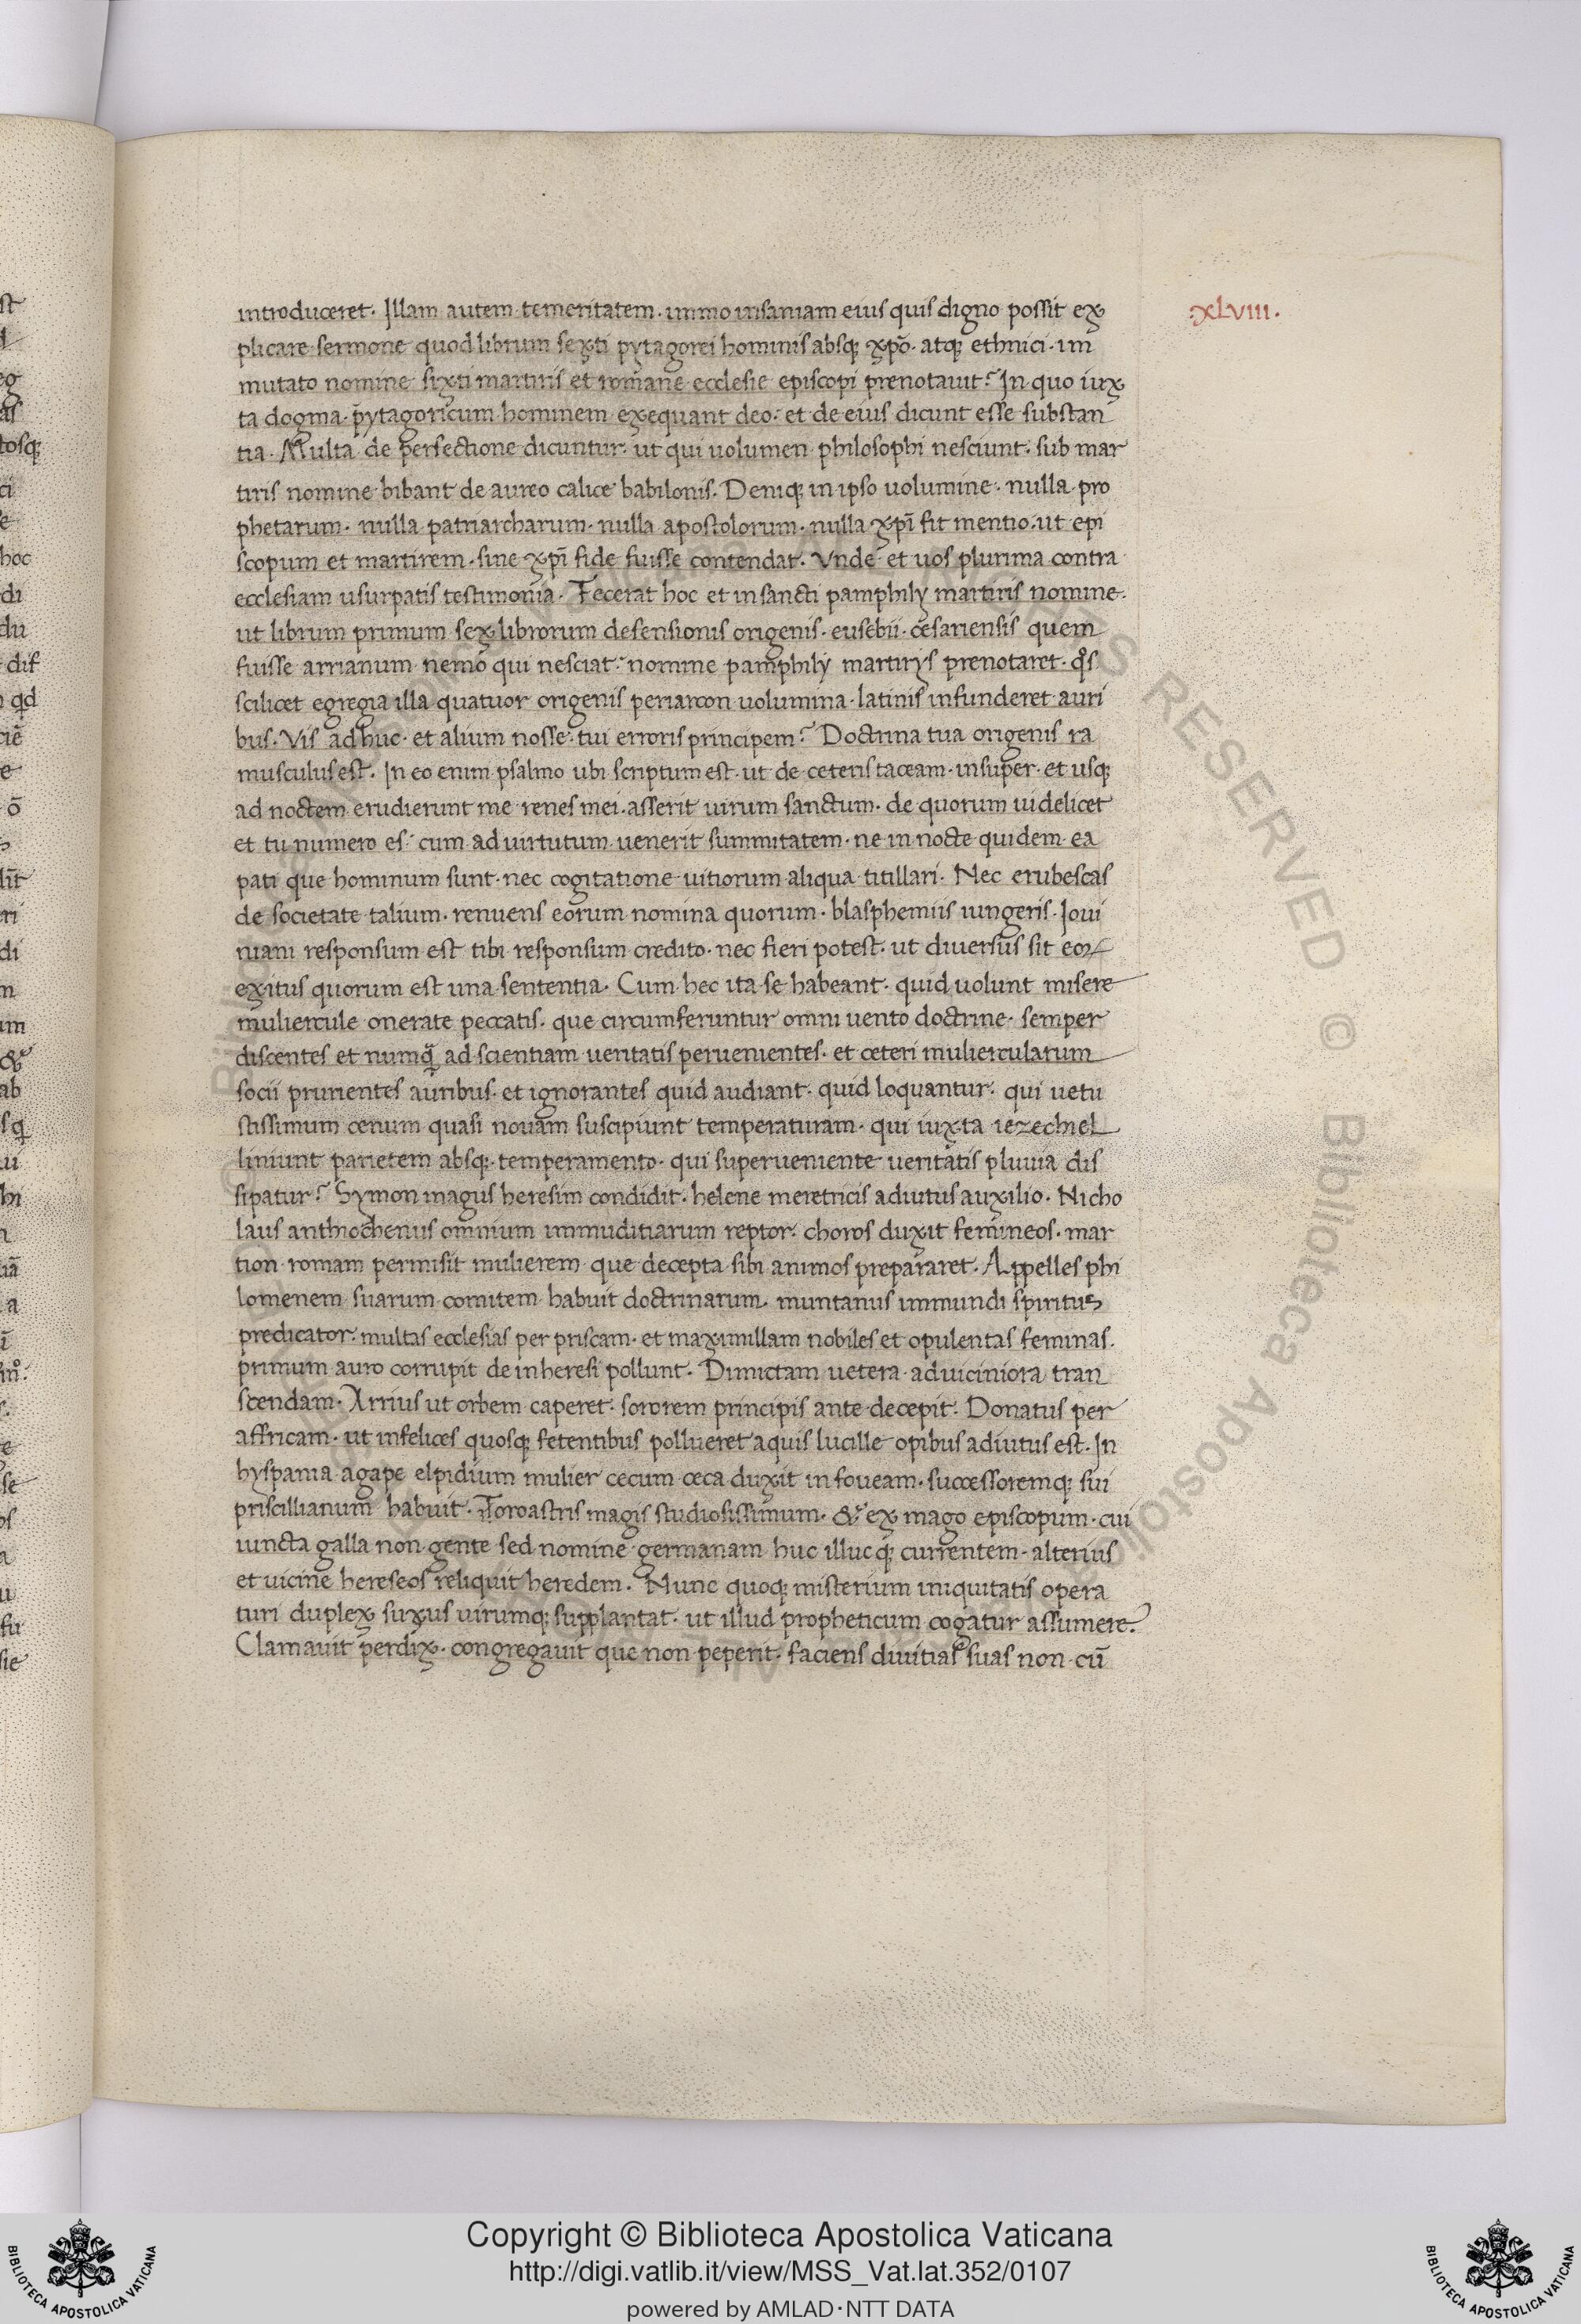 introduceret. Illam autem temeritatem. immo insaniam eius quis digno possit ex
·xLviii·
plicare sermone quod librum sexti pytagorei hominis absq; xp̄o. atq; ethnici. im
mutato nomine sixti martiris et romane ecclesie episcopi prenotauit? In quo iux
ta dogma pytagoricum hominem exequant deo. et de eius dicunt esse substan
tia. Multa de perfectione dicuntur. ut qui uolumen philosophi nesciunt. sub mar
tiris nomine bibant de aureo calice babilonis. Deniq; in ipso uolumine. nulla pro
phetarum. nulla patriarcharum. nulla apostolorum. nulla xp̄i fit mentio. ut epi
scopum et martirem. sine xp̄i fide fuisse contendat. Vnde et uos plurima contra
ecclesiam usurpatis testimonia. Fecerat hoc et in sancti pamphily martiris nomine.
ut librum primum sex librorum defensionis origenis. eusebii. cesariensis quem
fuisse arrianum nemo qui nesciat. nomine pamphily martirys prenotaret. qos
scilicet egregia illa quatuor origenis periarcon uolumina. latinis infunderet auri
bus. Vis adhuc. et alium nosse. tui erroris principem? Doctrina tua origenis ra
musculus est. In eo enim psalmo ubi scriptum est. ut de ceteris taceam. insuper. et usq;
ad noctem erudierunt me renes mei. asserit uirum sanctum. de quorum uidelicet
et tu numero es. cum ad uirtutum uenerit summitatem. ne in nocte quidem ea
pati que hominum sunt. nec cogitatione uitiorum aliqua titillari. Nec erubescas
de societate talium. renuens eorum nomina quorum. blasphemiis iungeris. Ioui
niani responsum est tibi responsum credito. nec fieri potest. ut diuersus sit eoꝝ
exitus quorum est una sententia. Cum hec ita se habeant. quid uolunt misere
muliercule onerate peccatis. que circumferuntur omni uento doctrine. semper
discentes et numq̄ ad scientiam ueritatis peruenientes. et ceteri muliercularum
socii prurientes auribus. et ignorantes quid audiant. quid loquantur. qui uetu
stissimum cenum quasi nouam suscipiunt temperaturam. qui iuxta iezechiel
liniunt parietem absq; temperamento. qui superueniente ueritatis pluuia dis
sipatur? Symon magus heresim condidit. helene meretricis adiutus auxilio. Nicho
laus anthiochenus omnium immuditiarum reptor. choros duxit femineos. mar
tion romam permisit mulierem que decepta sibi animos prepararet. Appelles phi
lomenem suarum comitem habuit doctrinarum. muntanus immundi spiritus
predicator. multas ecclesias per priscam. et maximillam nobiles et opulentas feminas.
primum auro corrupit de in heresi pollunt. Dimictam uetera ad uiciniora tran
scendam. Arrius ut orbem caperet. sororem principis ante decepit. Donatus per
affricam. ut infelices quosq; fetentibus pollueret aquis lucille opibus adiutus est. In
hyspania agape elpidium mulier cecum ceca duxit in foueam. successoremq; sui
priscillianum habuit. Zoroastris magis studiosissimum. & ex mago episcopum. cui
iuncta galla non gente sed nomine germanam huc illuc q; currentem. alterius
et uicine hereseos reliquit heredem. Nunc quoq; misterium iniquitatis opera
turi duplex suxus uirumq; supplantat. ut illud propheticum cogatur assumere.
Clamauit perdix. congregauit que non peperit. faciens diuitias suas non cū
Copyright © Biblioteca Apostolica Vaticana
http://digi.vatlib.it/view/MSS_Vat.lat.352/0107
powered by AMLAD·NTT DATA